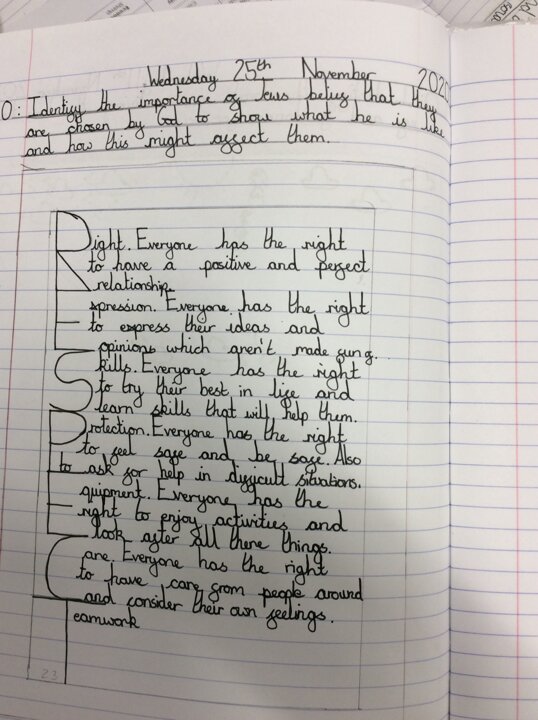 Wednesday 25th November 2020
O: Identify the importance of Jews belief that they
are chosen by God to show what he is like
and how this might affect them.
Right. Everyone has the right
to have a positive and perfect
relationship.
Expression. Everyone has the right
to express their ideas and
opinions which aren't made fun of.
Skills. Everyone has the right
to try their best in life and
learn skills that will help them.
Protection. Everyone has the right
to feel safe and be safe. Also
to ask for help in difficult situations.
Equipment. Everyone has the
right to enjoy activities and
look after all there things.
Care. Everyone has the right
to have care from people around
and consider their own feelings.
Teamwork
23